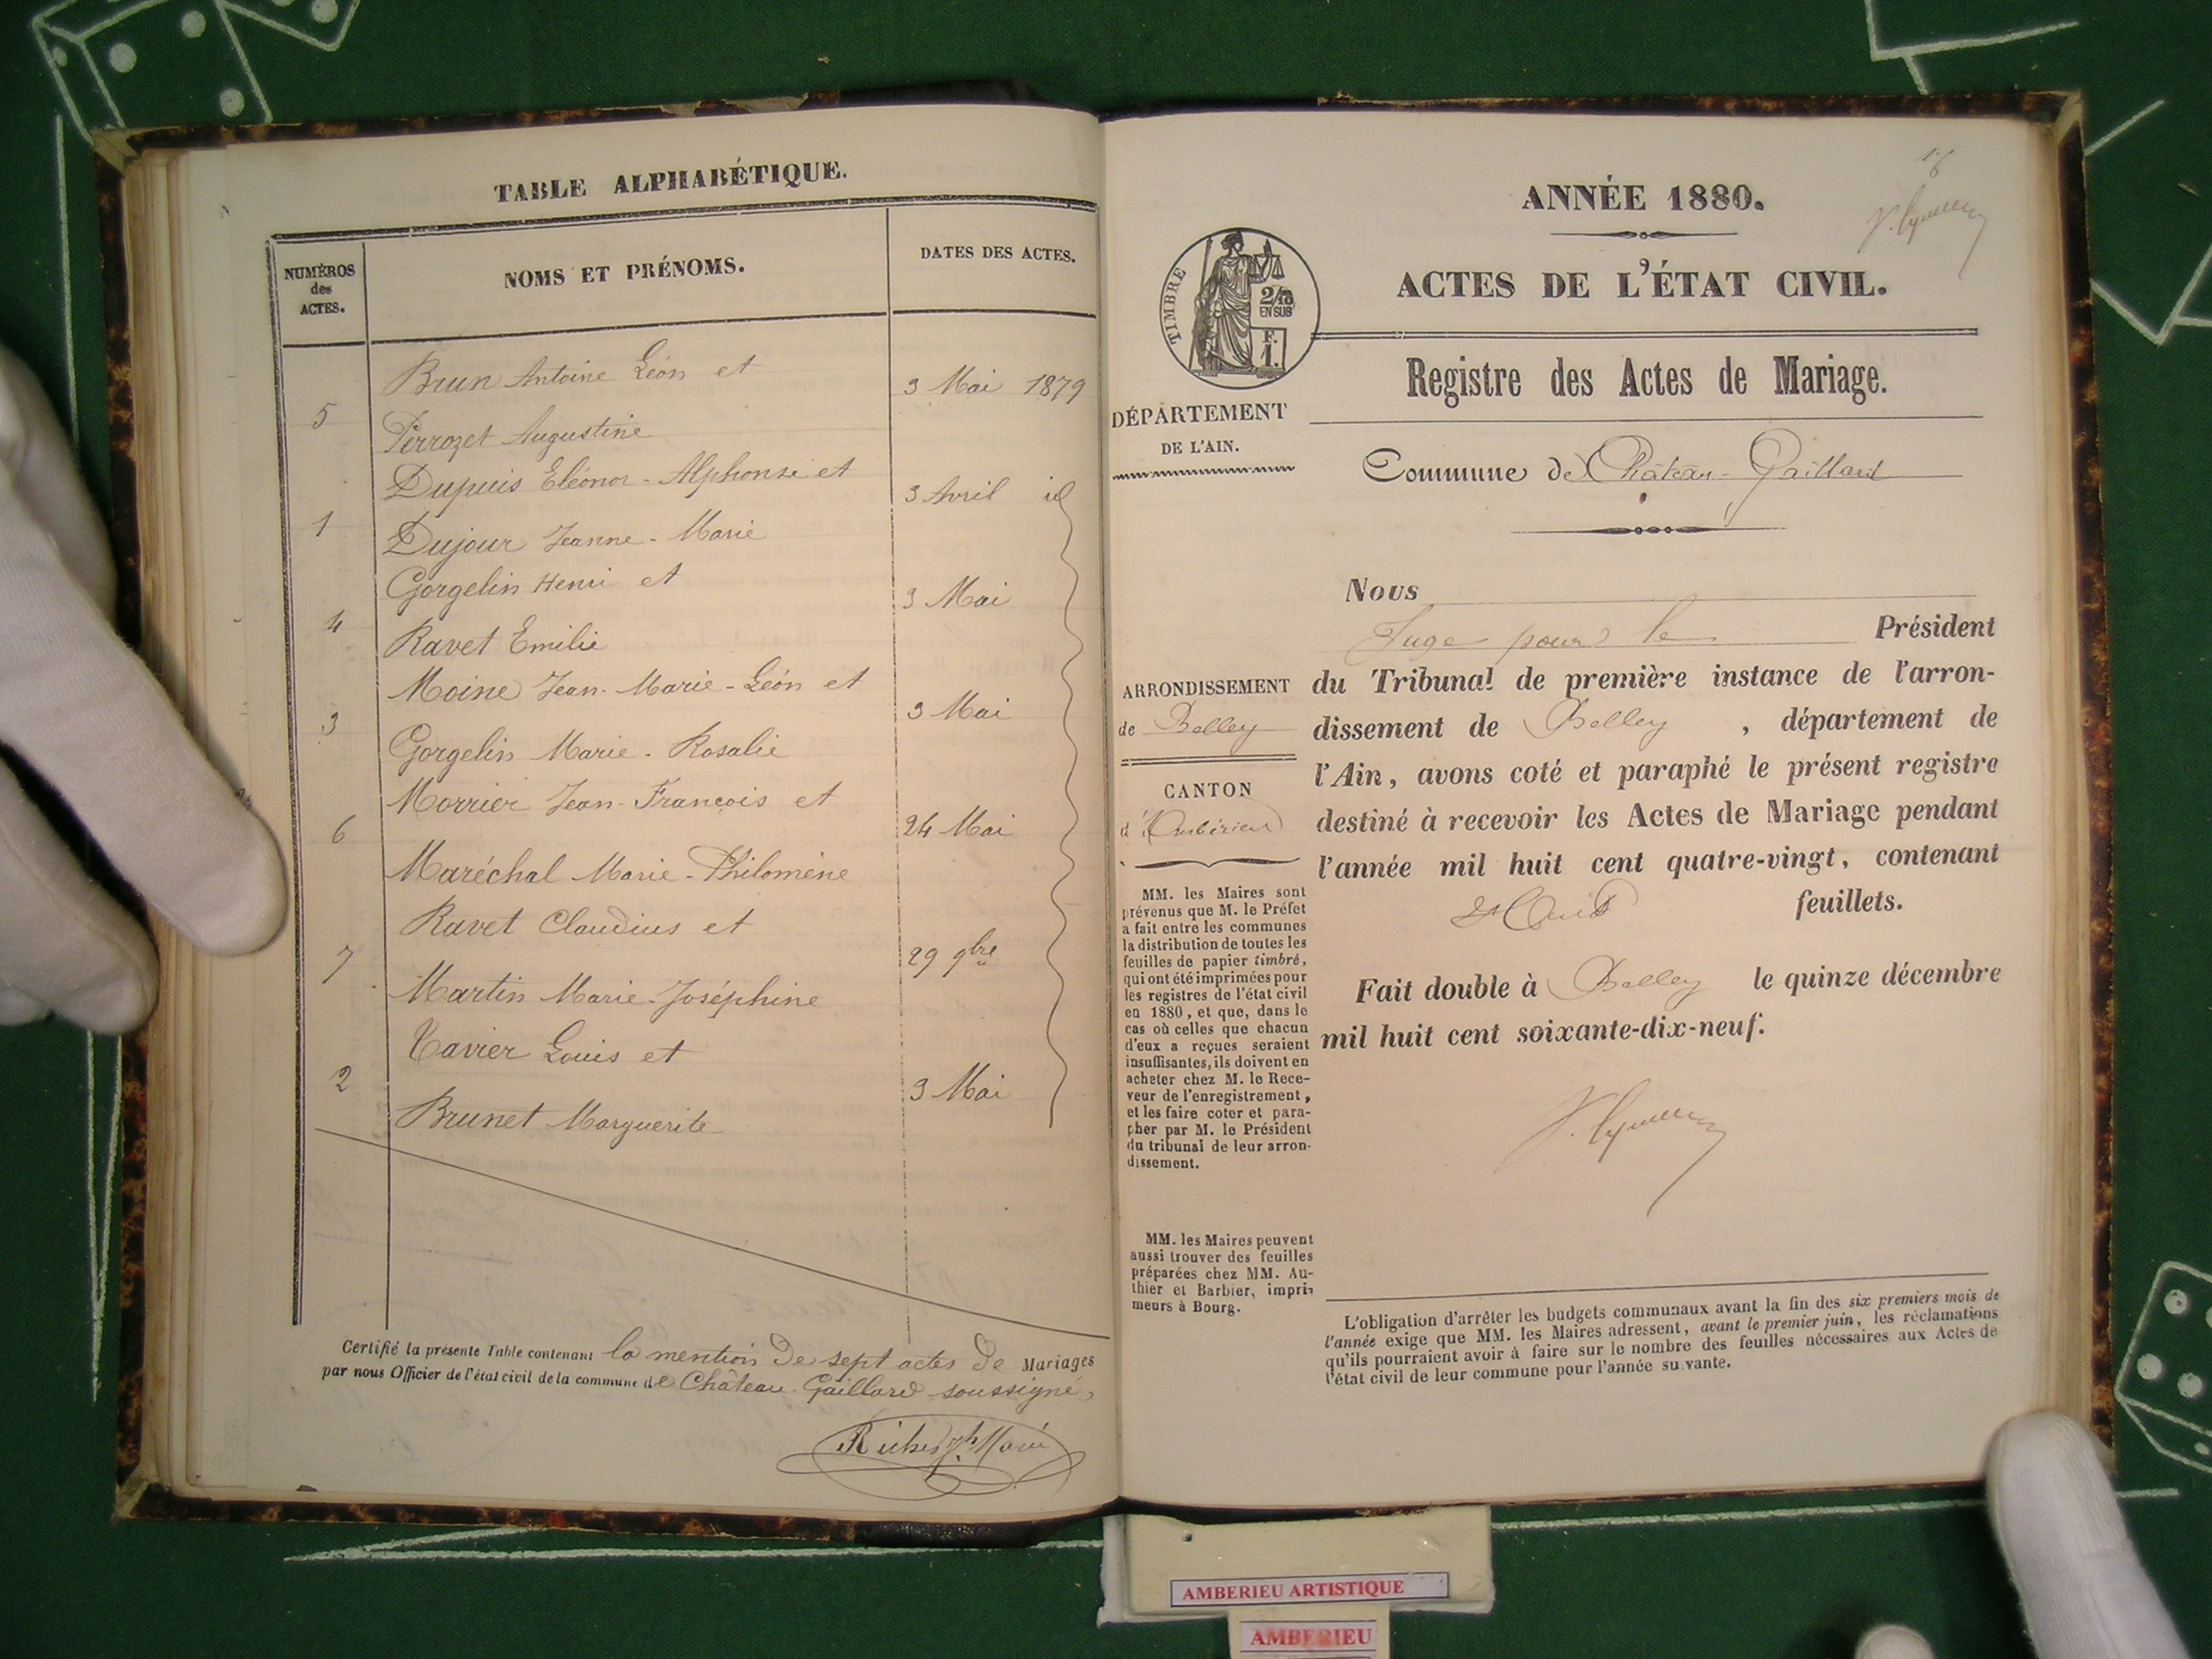 TABLE ALPHABÉTIQUE.
NUMÉROS
des
ACTES.
NOMS ET PRÉNOMS.
DATES DES ACTES.
Brun Antoine Léon et
3 Mai 1879
5
Perrozet Augustine
Dupuis Eléonor-Alphonse et
3 Avril id
1
Dujour Jeanne-Marie
Gorgelin Henri et
3 Mai
4
Ravet Emilie
Moine Jean-Marie-Léon et
3 Mai
3
Gorgelin Marie-Rosalie
Morrier Jean-François et
24 Mai
6
Maréchal Marie-Philomène
Ravet Claudius et
29 9bre
7
Martin Marie-Joséphine
Tavier Louis et
3 Mai
2
Brunet Marguerite
Certifié la présente Table contenant la mention de sept actes de Mariages
par nous Officier de l'état civil de la commune de Château-Gaillard soussigné,
ANNÉE 1880.
ACTES DE L'ÉTAT CIVIL.
TIMBRE
2/10
EN SUS
F.
1.
Registre des Actes de Mariage.
DÉPARTEMENT
DE L'AIN.
Commune de Château-Gaillard
Nous
Juge pour le Président
du Tribunal de première instance de l'arron-
dissement de Belley, département de
l'Ain, avons coté et paraphé le présent registre
destiné à recevoir les Actes de Mariage pendant
l'année mil huit cent quatre-vingt, contenant
feuillets.
Fait double à Belley le quinze décembre
mil huit cent soixante-dix-neuf.
ARRONDISSEMENT
de Belley
CANTON
d'Ambérieu
MM. les Maires sont
prévenus que M. le Préfet
a fait entre les communes
la distribution de toutes les
feuilles de papier timbré,
qui ont été imprimées pour
les registres de l'état civil
en 1880, et que, dans le
cas où celles que chacun
d'eux a reçues seraient
insuffisantes, ils doivent en
acheter chez M. le Rece-
veur de l'enregistrement,
et les faire coter et para-
pher par M. le Président
du tribunal de leur arron-
dissement.
MM. les Maires peuvent
aussi trouver des feuilles
préparées chez MM. Au-
thier et Barbier, impri-
meurs à Bourg.
L'obligation d'arrêter les budgets communaux avant la fin des six premiers mois de
l'année exige que MM. les Maires adressent, avant le premier juin, les réclamations
qu'ils pourraient avoir à faire sur le nombre des feuilles nécessaires aux Actes de
l'état civil de leur commune pour l'année suivante.
AMBERIEU ARTISTIQUE
AMBERIEU